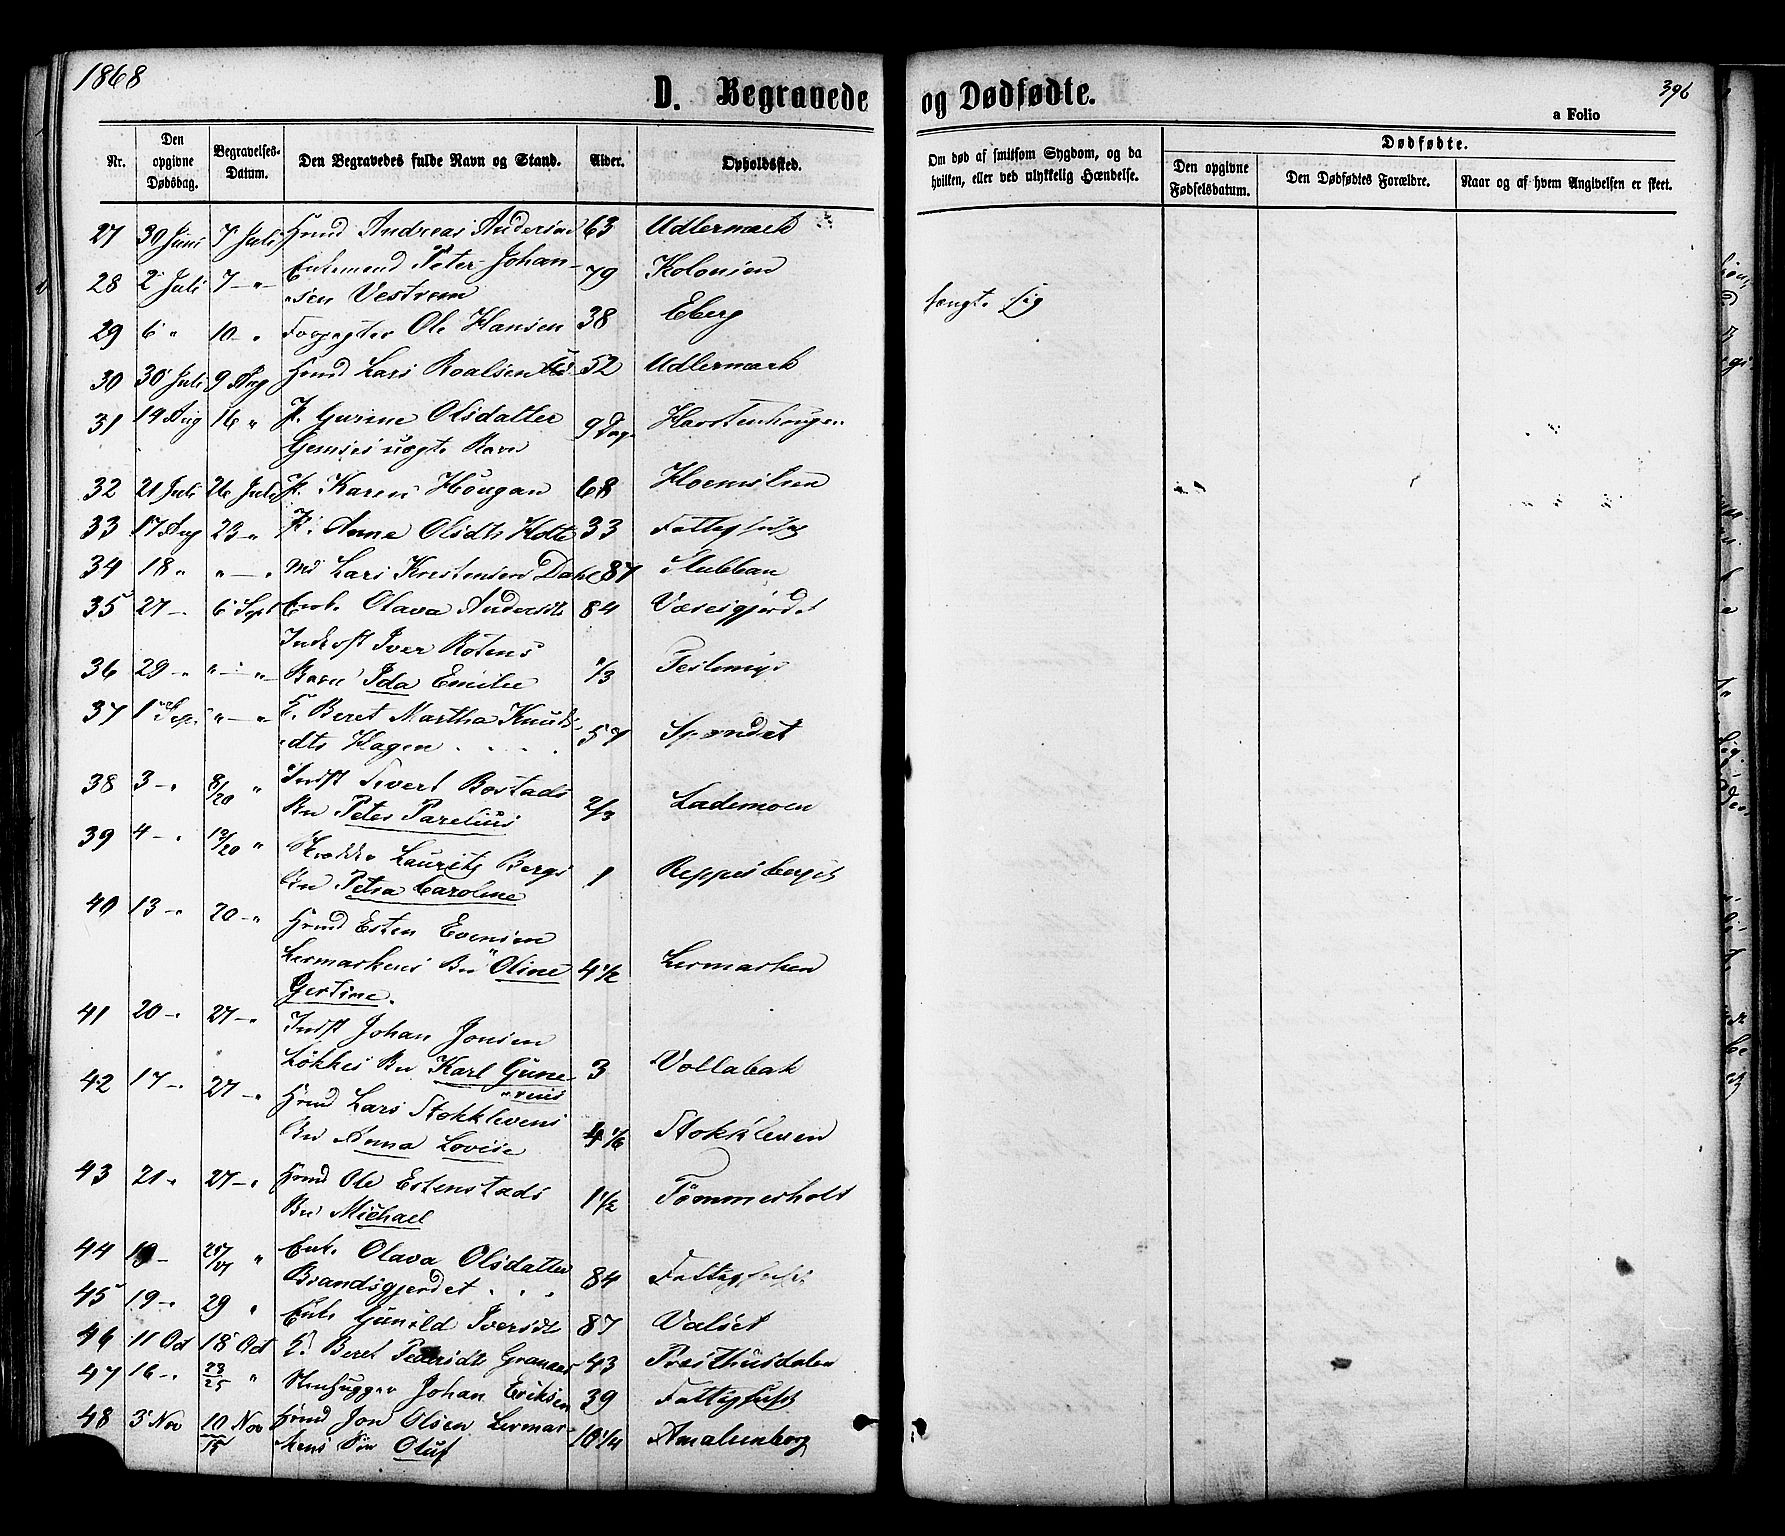 1868
D. Begravede og Dødfødte.
396
a Folio
Nr. Den opgivne Dødsdag. Begravelses-Datum. Den Begravedes fulde Navn og Stand. Alder. Opholdssted. Om død af smitsom Sygdom, og da hvilken, eller ved ulykkelig Hændelse. Dødfødte. Den opgivne Fødselsdatum. Den Dødfødtes Forældre. Naar og af hvem Angivelsen er skeet.
27 30 Juni 7 Juli Hmd Andreas Andersen 63 Udlermark
28 2 Juli 7 — „ Enkemand Peter Johan-
sen Vestrem 79 Kolonien
29 6 „ 10 — „ Forpagter Ole Hansen 38 Eberg hængte sig
30 30 Juli 9 Aug Hmd Lars Roalsen 52 Udlermark
31 14 Aug 16 „ P. Gurine Olsdatter
uægte Barn 9 Dage
32 21 Juli 26 Juli P. Karen Hougan 68
33 17 Aug 23 „ P. Anne Olsdtr 33
34 18 „ „ — „ Lars Kristensen Dahl 87 Stubban
35 27 — 6 Sept Enke Olava Andersdtr 84
36 29 — „ „ — „ Iver
Barn Ida Emilie
37 1 Sept „ — „ K. Beret Martha Knuds-
dtr Hagen . . . . 57
38 3 — „ 8/20 „ Indst Sivert Rostads
Bn Peter Parelius 2/3 Lademoen
39 4 — „ 12/20 „ Laurits Bergs
Bn Petra Caroline 1 Reppesberget
40 13 — „ 20 — „ Hmd Esten Evensen
Lermarkens Bn Oline
Gertine. 4 1/2 Lermarken
41 20 — „ 27 — „ Indst Johan Jonsen
Løkkes Bn Karl Gune-
rius 3 Vollabak
42 17 — „ 27 — „ Hmd Lars Stokklevens
Bn Anna Lovise 4 1/6 Stokkleven
43 21 „ 27 — „ Hmd Ole Estenstads
Bn Michael 1 1/2 Tømmerholt
44 „ Enke Olava Olsdatter
Brandsgjerdet . . . 84
45 19 — „ 29 „ Enke Gunild Iversdtr 87 Valset
46 11 Oct 18 Oct K. Beret Pedersdtr 43 Presthusdalen
47 16 — „ 23/25 „ Stenhugger Johan Eriksen 39
48 3 Nov 10/15 Nov Hmd Jon Olsen Lermar-
kens Søn Oluf 10 1/4 Amalienborg